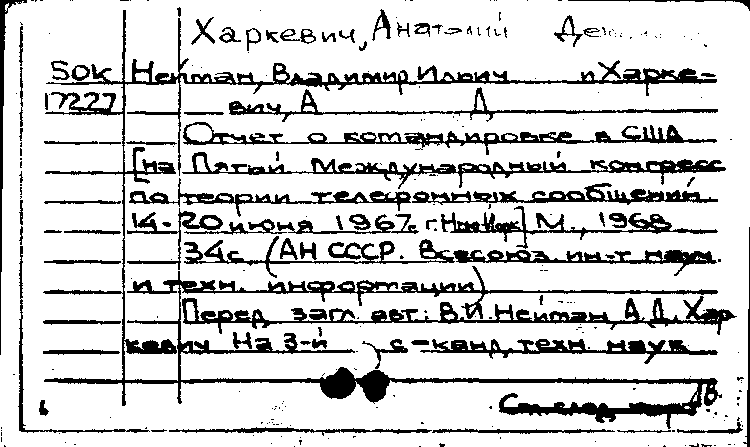 Харкевич, Анатолий
50К Нейман, Владимир Ильич и Харке-
17227 вич, А Д
Отчет о командировке в США
[на Пятый Международный конгресс
по теории телефонных сообщений
14-20 июня 1967г. г. Нью-Йорк] М., 1968
34с. (АН СССР. Всесоюз. ин-т науч.
и техн. информации)
Перед загл. авт.: В.И. Нейман, А.Д. Хар
кевич На 3-й с - канд. техн. наук
См. след. карт.